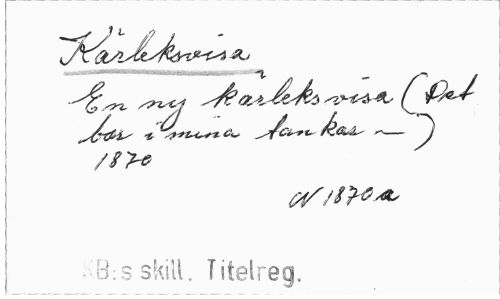 Kärleksvisa
En ny kärleksvisa (Det
bor i mina tankar —)
1870
N 1870 a
KB:s skill. Titelreg.